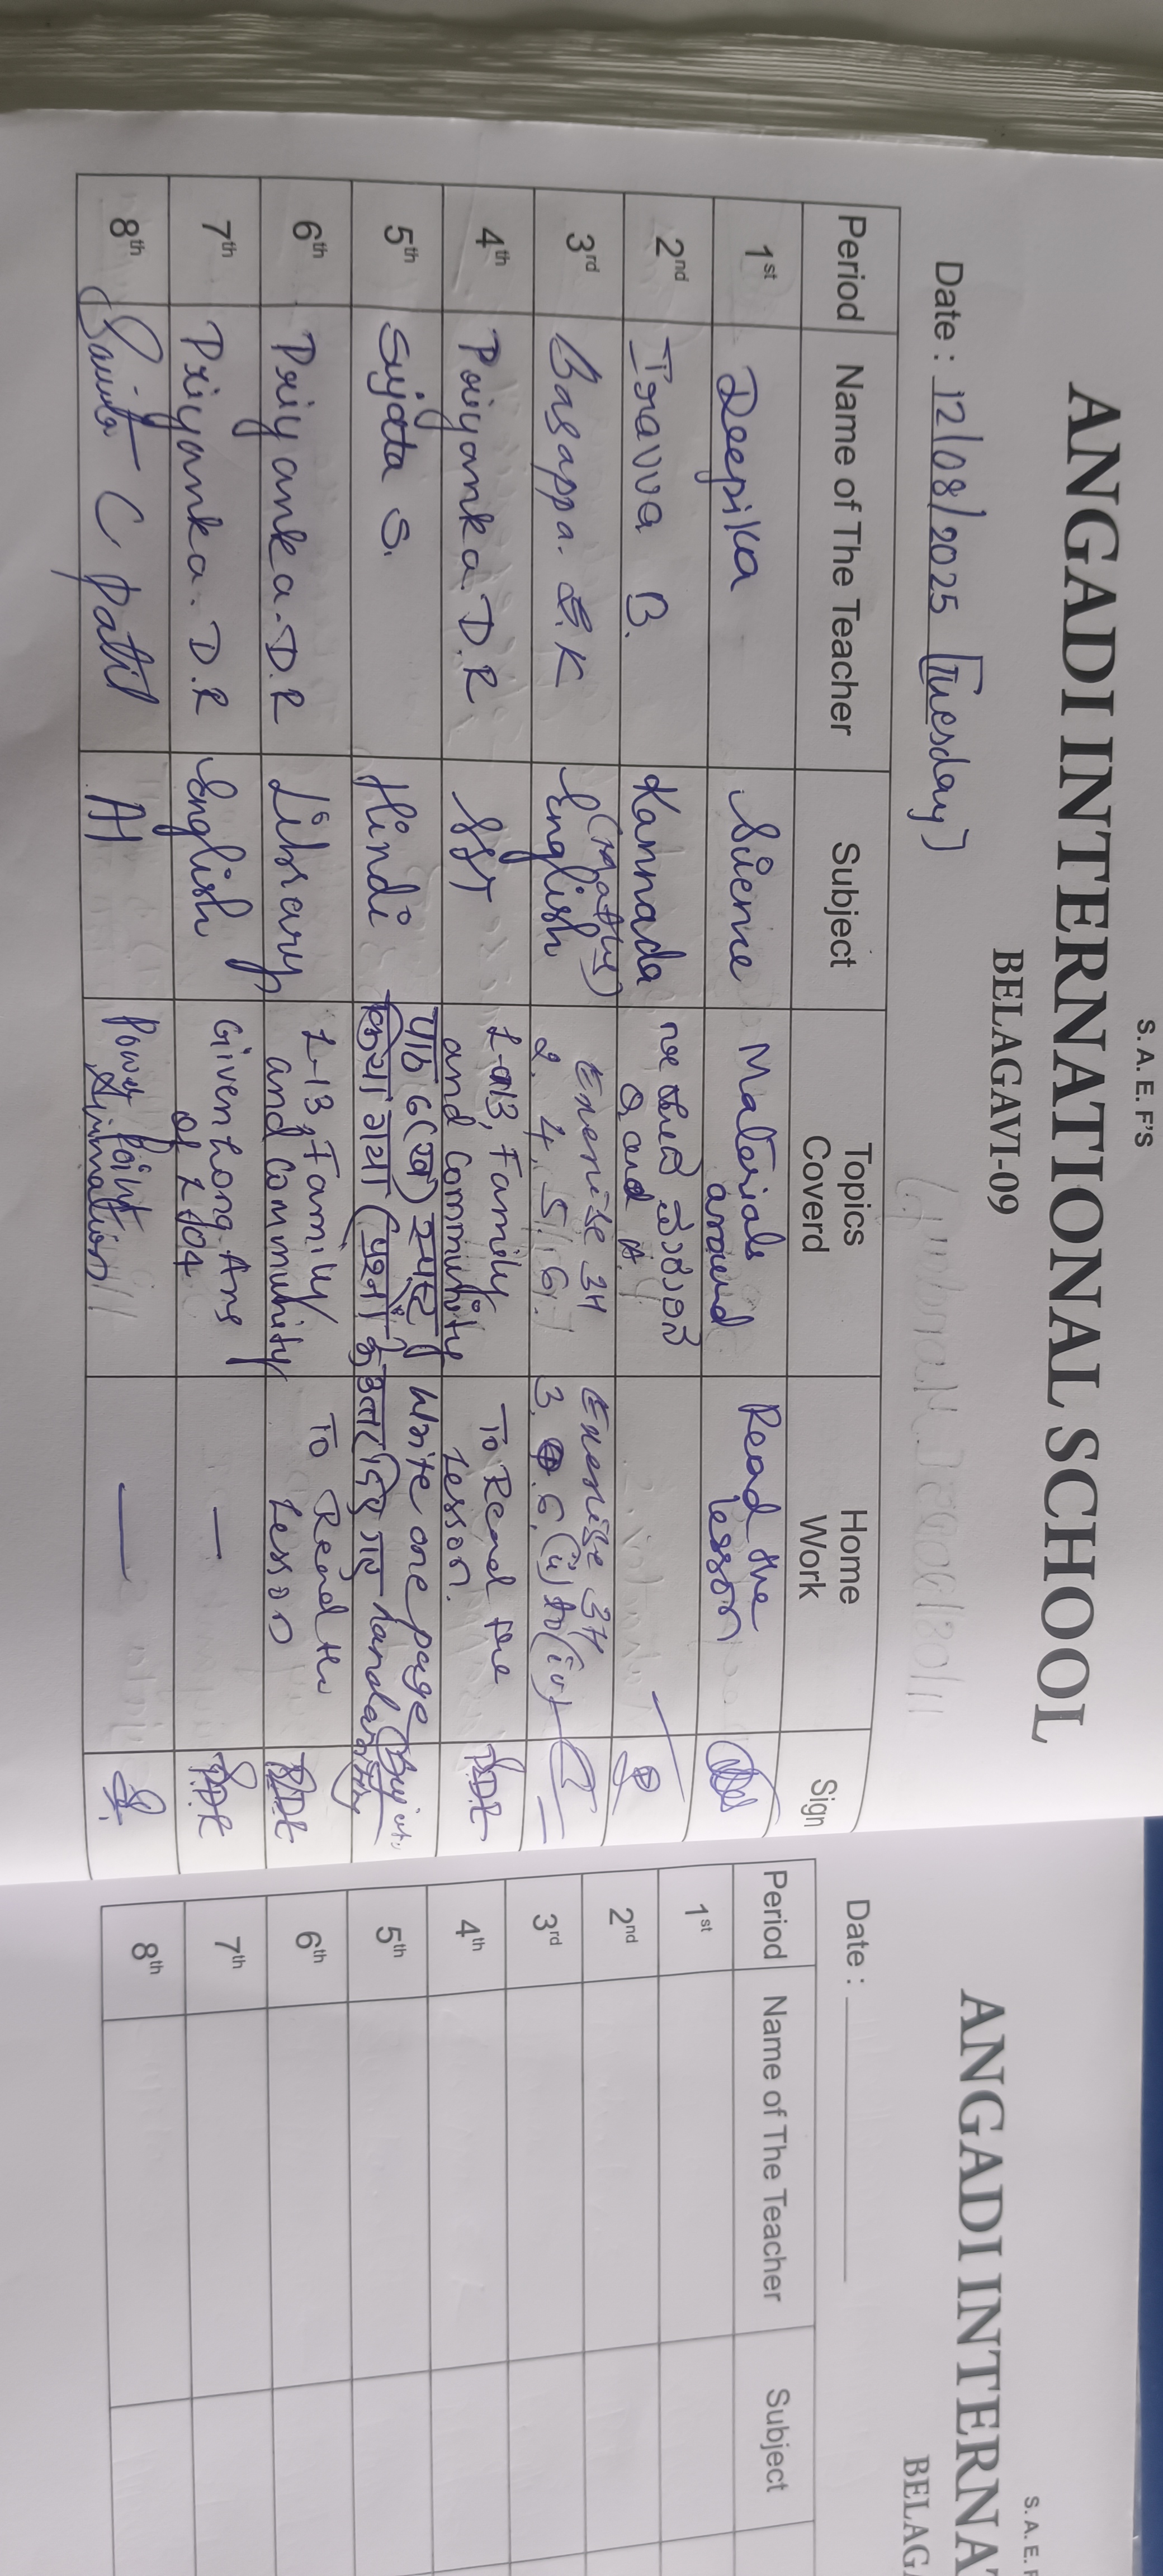 S. A. E. F'S
ANGADI INTERNATIONAL SCHOOL
BELAGAVI-09
Date : 12/08/2025 [Tuesday]
Period Name of The Teacher Subject Topics Coverd Home Work Sign
1st Deepika Science Materials around Read the lesson
2nd Iravva B. Kannada Q and A.
3rd Basappa. B.K (Maths) English Exercise 3H 2, 4, 5, 6. Exercise 3H 3, 6. (ii) to (iv)
4th Priyanka. D.R SST L-13, Family and Community To Read the Lesson.
5th Sujata S. Hindi पाठ 6 (ख) स्पष्ट किया गया (प्रश्नों के उत्तर दिए गए Write one page
6th Priyanka. D.R Library L-13, Family and Community To Read the Lesson
7th Priyanka. D.R English Given Long Ans of L-04 —
8th Savita C Patil AI Power Point Animation —
S. A. E. F
ANGADI INTERNAT
BELAGA
Date :
Period Name of The Teacher Subject
1st
2nd
3rd
4th
5th
6th
7th
8th